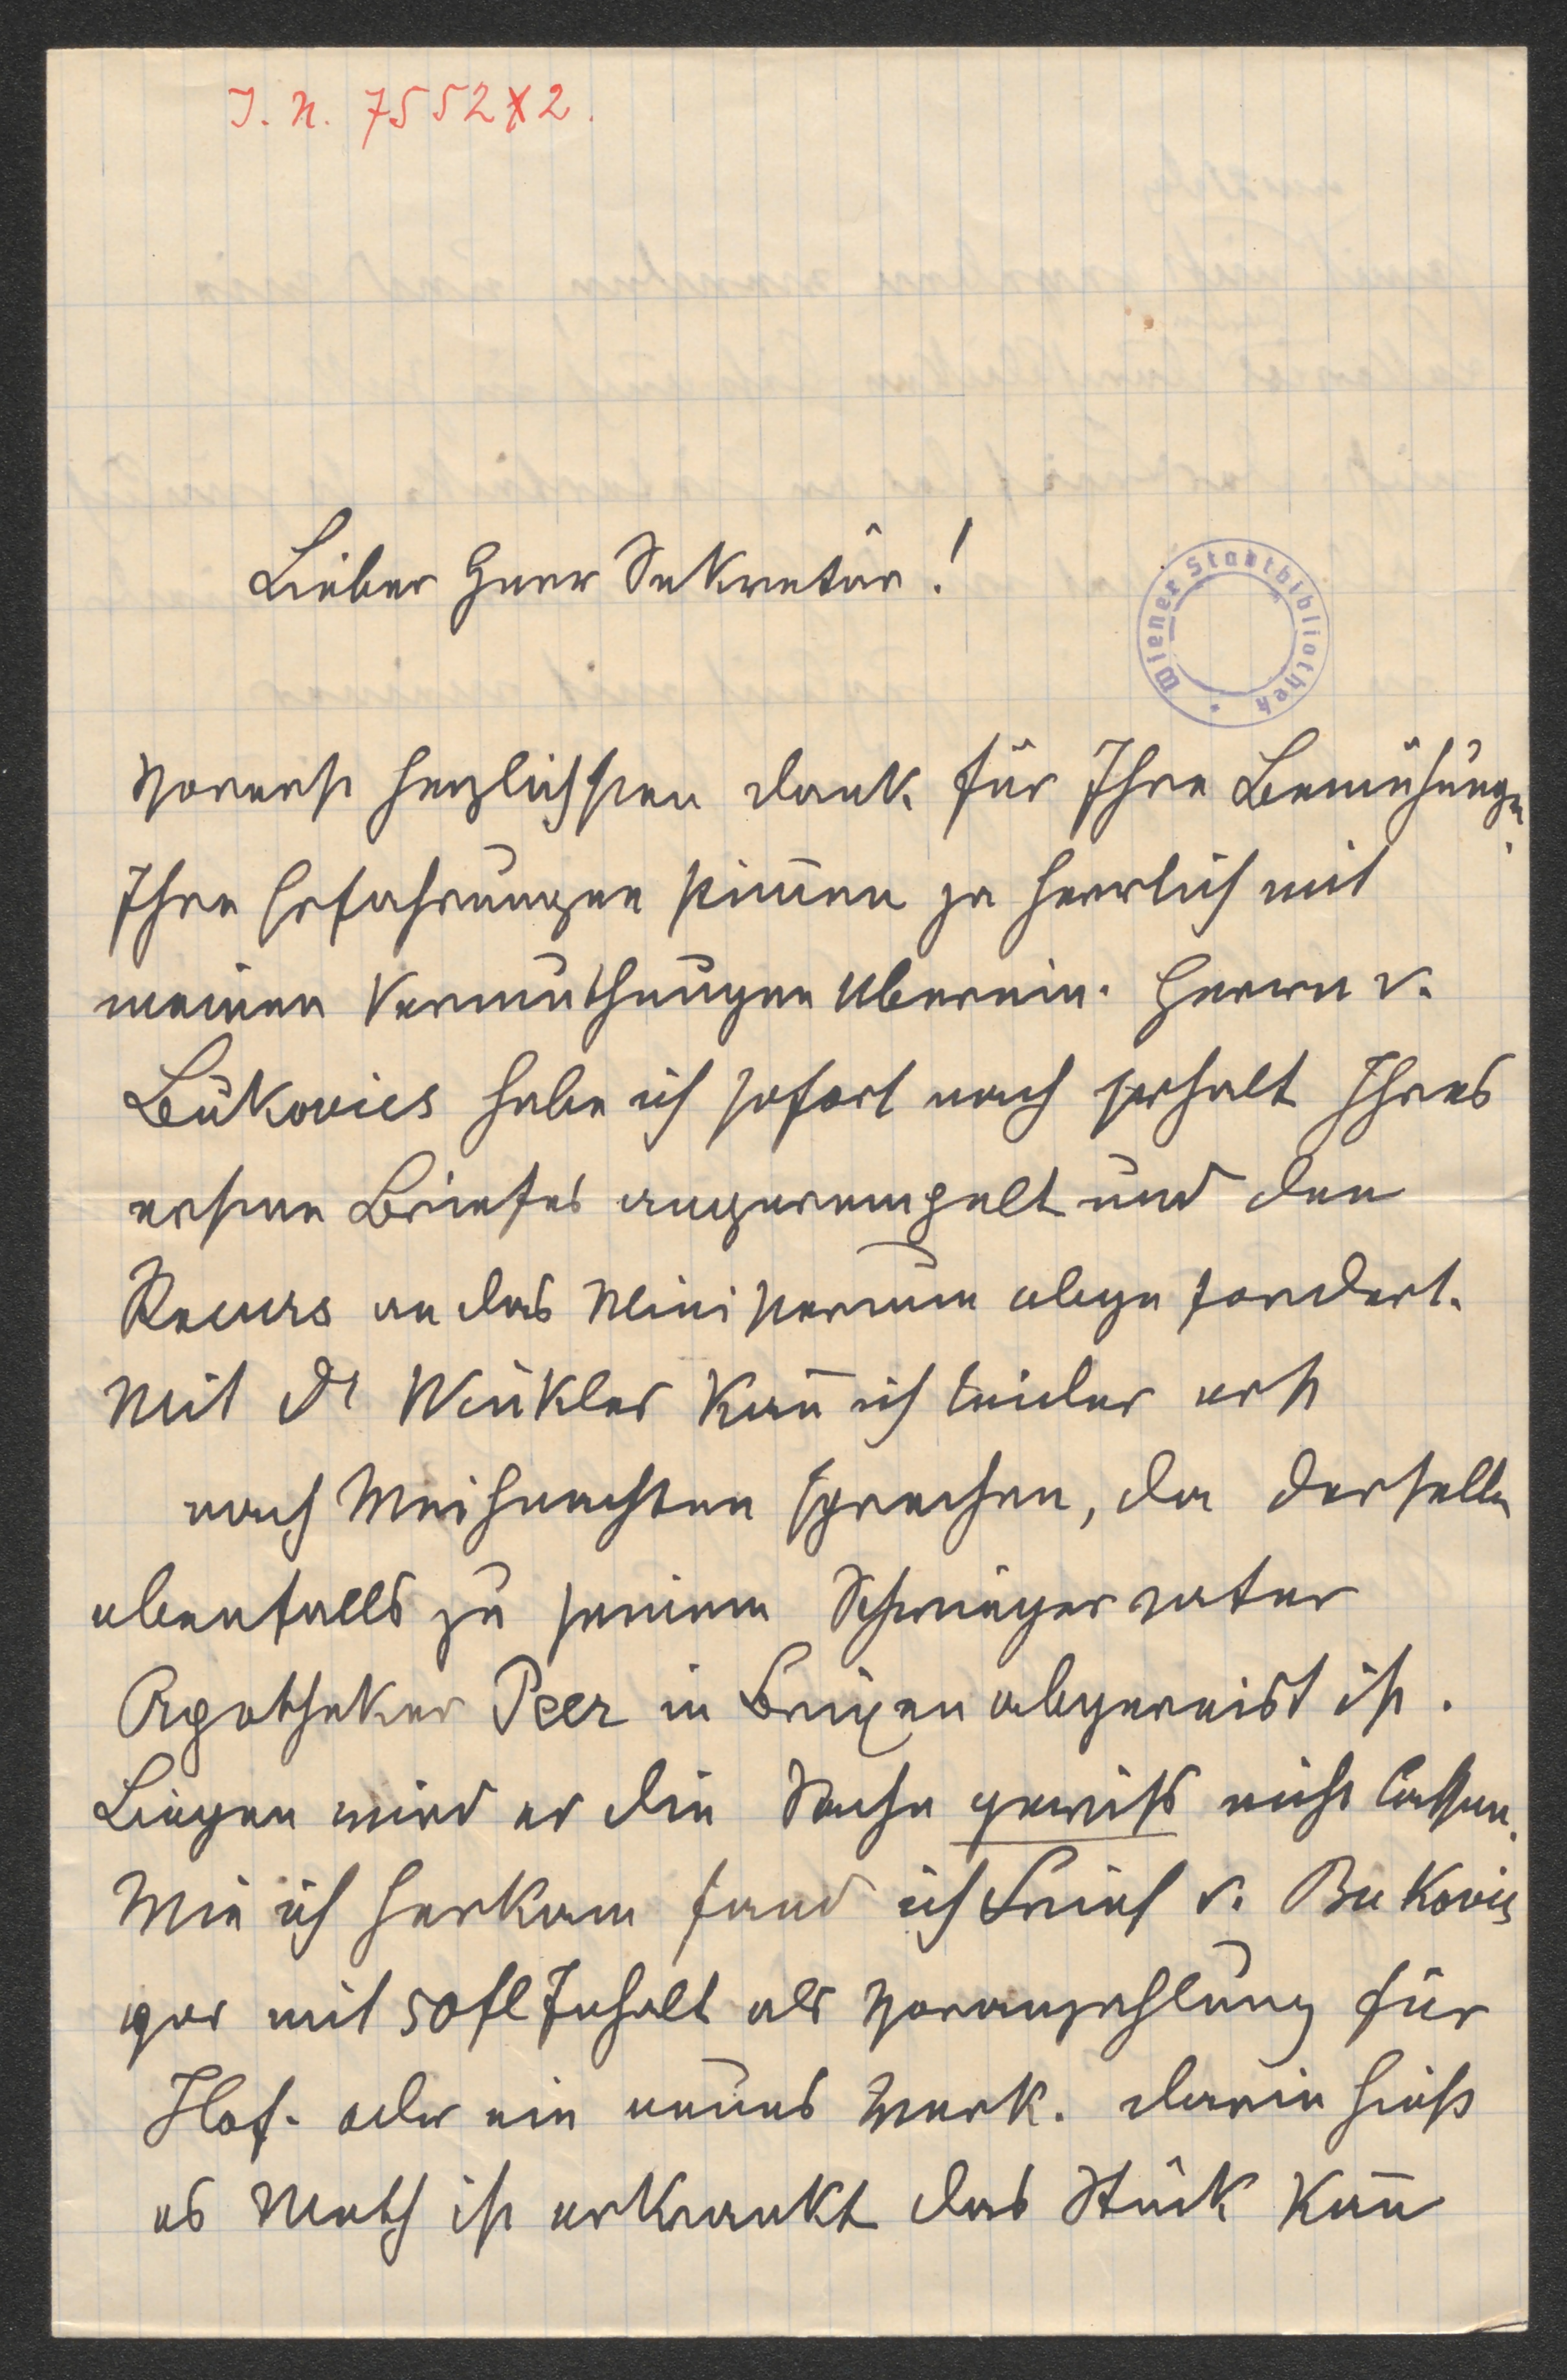 J. N. 75522.
Lieber Herr Sekretär!
Wiener Stadtbibliothek
Vorerst herzlichsten Dank für Ihre Bemühungen.
Ihre Erfahrungen stim̄en ja herrlich mit
meinen Vermuthungen überein. Herrn v.
Bukovics habe ich sofort nach Erhalt Ihres
ersten Briefes angerempelt und den
Recurs an das Ministerium abgefordert.
Mit Dr Winkler kan̄ ich leider erst
nach Weihnachten sprechen, da derselbe
ebenfalls zu seinem Schwiegervater
Apotheker Peer in Brixen abgereist ist.
Liegen wird er die Sache gewiß nicht lassen.
Wie ich herkam fand ich Brief v. Bukovics
gar mit 50 fl Inhalt als Voranzahlung für
Hof. oder ein neues Werk. Darin hieß
es Meth ist erkrankt das Stück kan̄